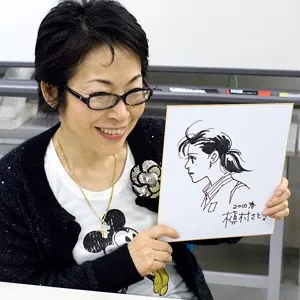 2010春
槇村さとる